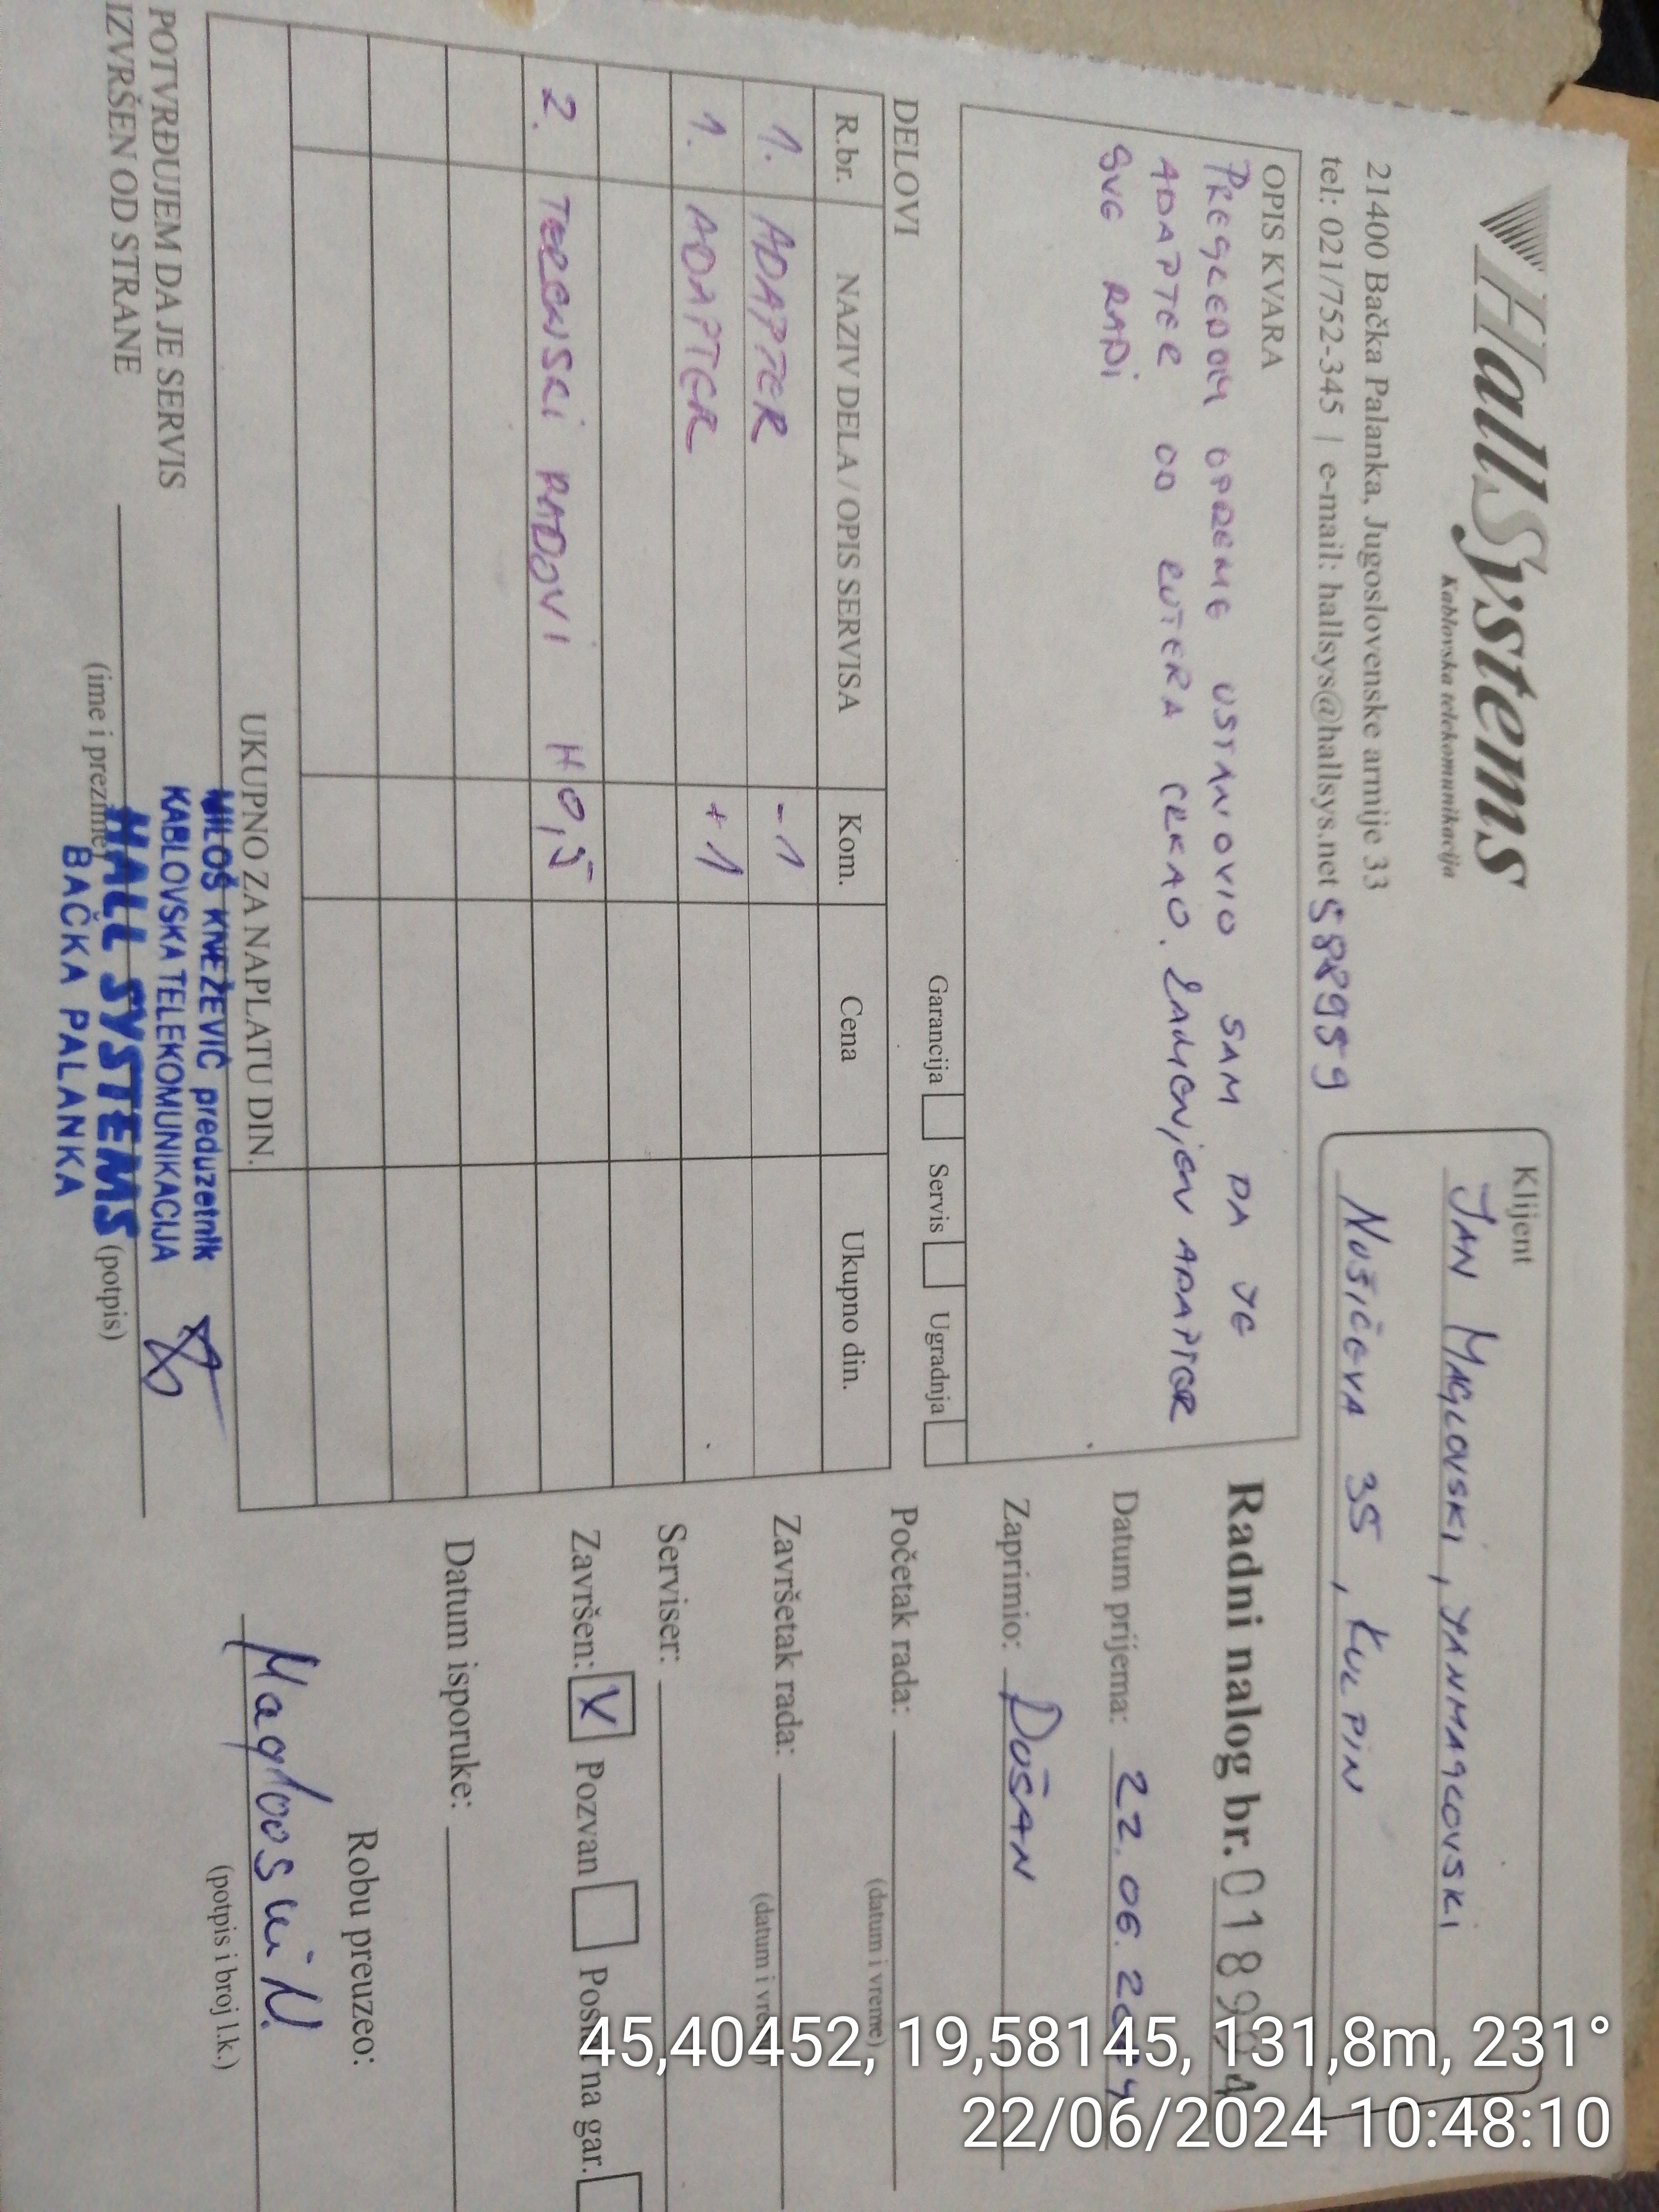 HallSystems
Kablovska telekomunikacija
21400 Bačka Palanka, Jugoslovenske armije 33
tel: 021/752-345 | e-mail: hallsys@hallsys.net
Klijent
JAN MAGLOVSKI, JANMAGLOVSKI
NUŠIĆEVA 35, KULPIN
OPIS KVARA
PREGLEDOM OPREME USTANOVIO SAM DA JE
ADAPTER OD RUTERA CRKAO. ZAMENJEN ADAPTER
SVE RADI
Garancija Servis Ugradnja
Radni nalog br.
Datum prijema: 22.06.2024
Zaprimio: DUŠAN
Početak rada:
(datum i vreme)
Završetak rada:
Serviser:
Završen: X Pozvan na gar.
Datum isporuke:
Robu preuzeo:
Maglovski N.
(potpis i broj l.k.)
DELOVI
R.br. NAZIV DELA / OPIS SERVISA Kom. Cena Ukupno din.
1. ADAPTER -1
1. ADAPTER +1
2. TERENSKI RADOVI H 0,5
UKUPNO ZA NAPLATU DIN.
POTVRĐUJEM DA JE SERVIS
IZVRŠEN OD STRANE
(ime i prezime) (potpis)
MILOŠ KNEŽEVIĆ preduzetnik
KABLOVSKA TELEKOMUNIKACIJA
HALL SYSTEMS
BAČKA PALANKA
45,40452, 19,58145, 131,8m, 231°
22/06/2024 10:48:10